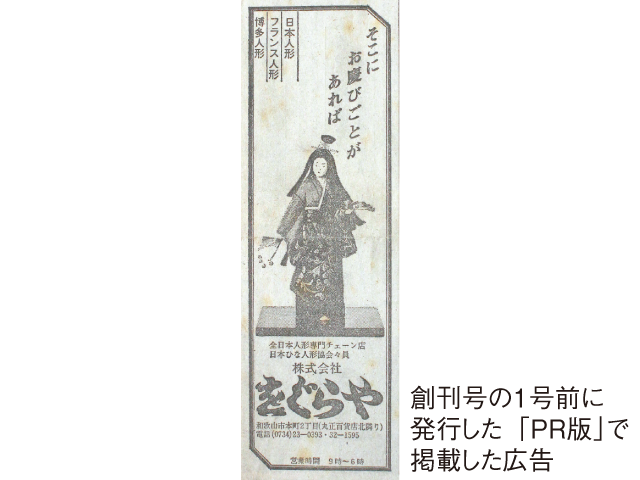 そこに
お慶びごとが
あれば
日本人形
フランス人形
博多人形
全日本人形専門チェーン店
日本ひな人形協会々員
株式会社
をぐらや
和歌山市本町2丁目(丸正百貨店北隣り)
電話(0734)23−0393・32−1595
営業時間 9時〜6時
創刊号の1号前に
発行した「PR版」で
掲載した広告